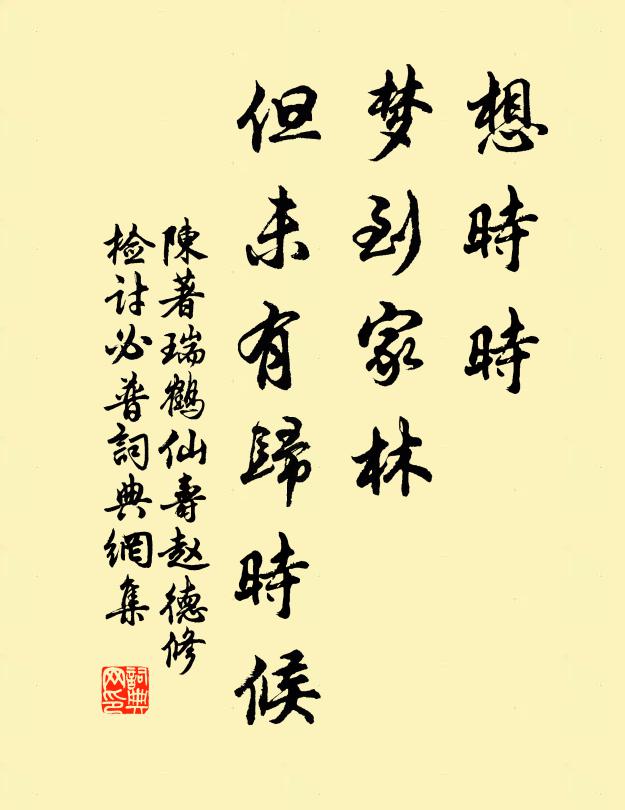 想時時
梦到家林
但未有歸時候
陳著瑞鶴仙壽赵德修
检讨必普詞典網集
詞典网印